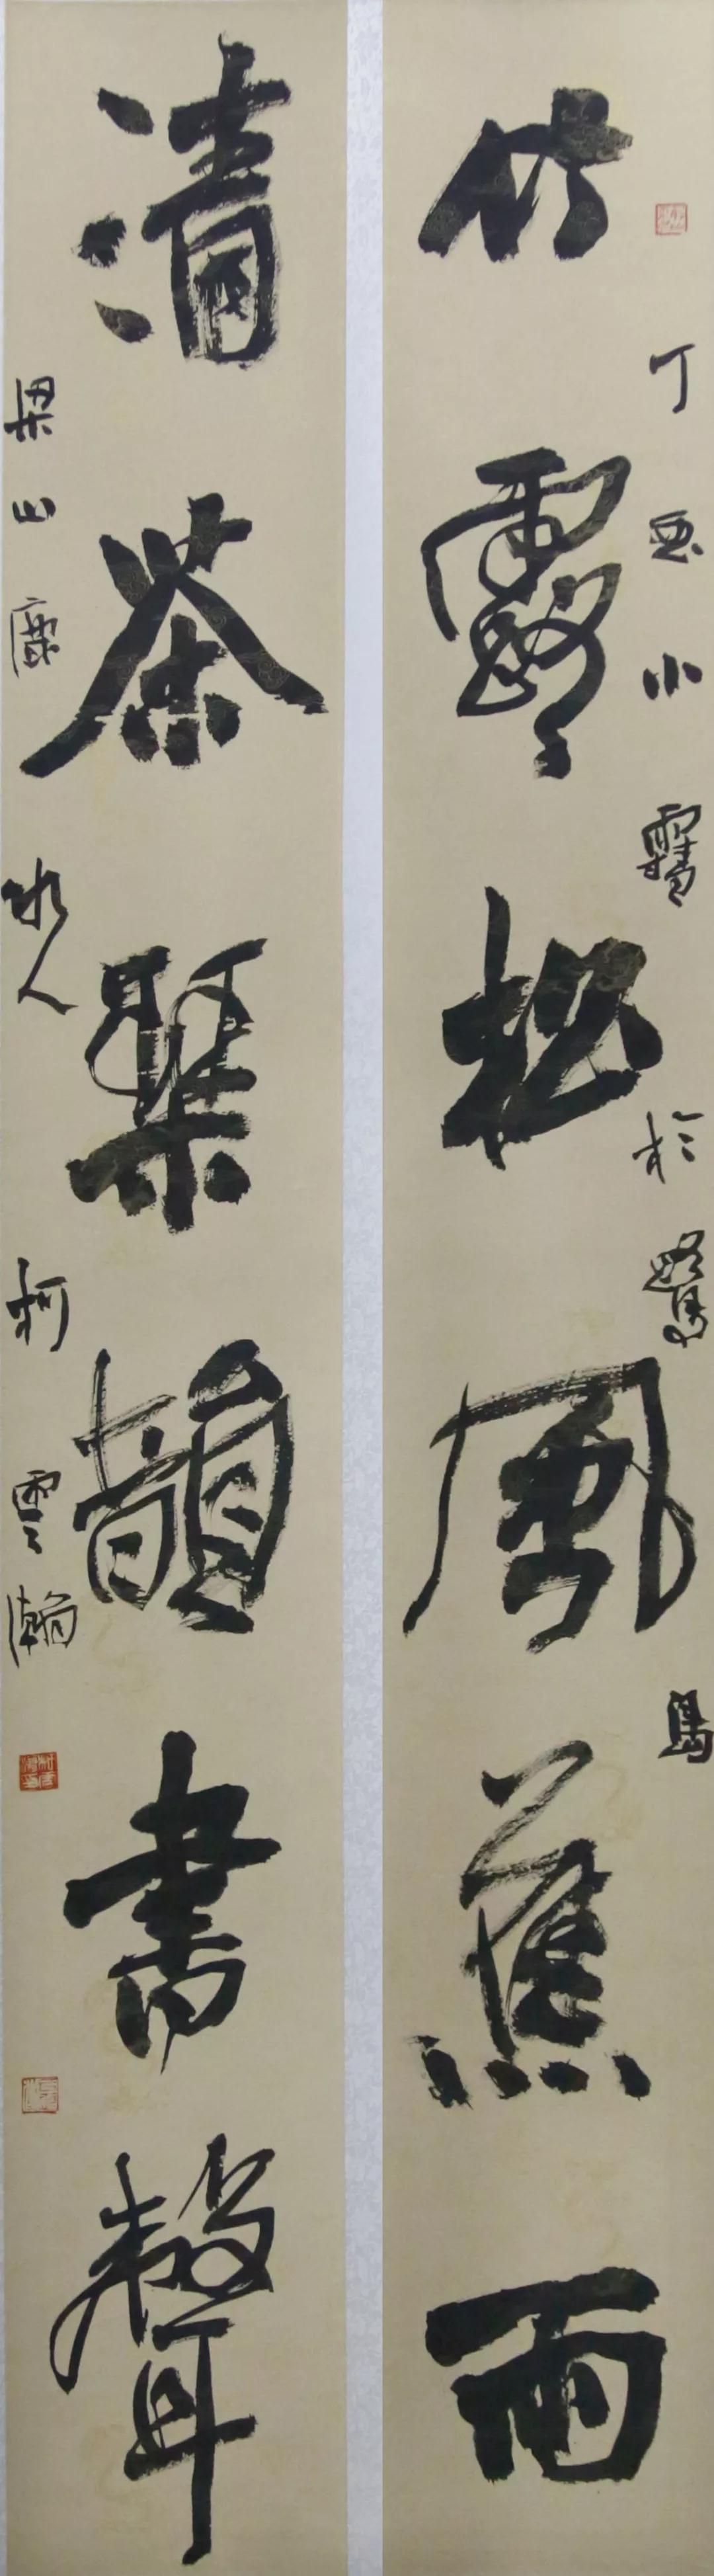 竹露松風蕉雨
丁酉小雪於鷺島
清茶琴韻書聲
梁山鹿水人柯雲瀚